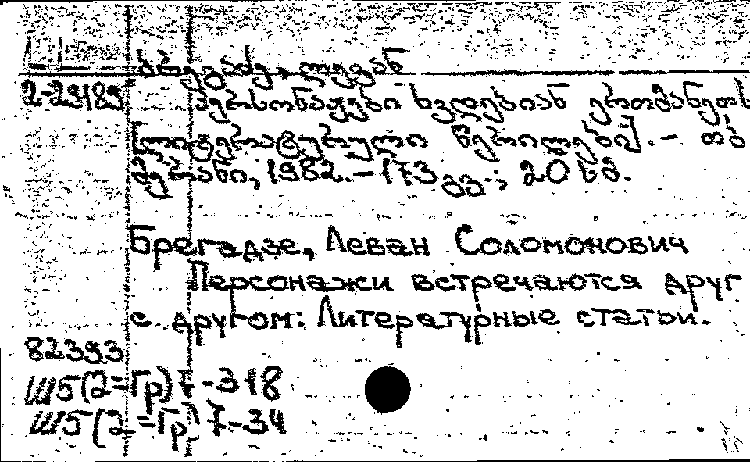 ბრეგაძე, ლევან
2-29189 პერსონაჟები ხვდებიან ერთმანეთს
[ლიტერატურული წერილები]. - თბ
მერანი, 1982. - 173 გვ.; 20 სმ.
Брегадзе, Леван Соломонович
Персонажи встречаются друг
с другом: Литературные статьи.
82393
Ш5(2=Гр)7-318
Ш5(2=Гр)7-34